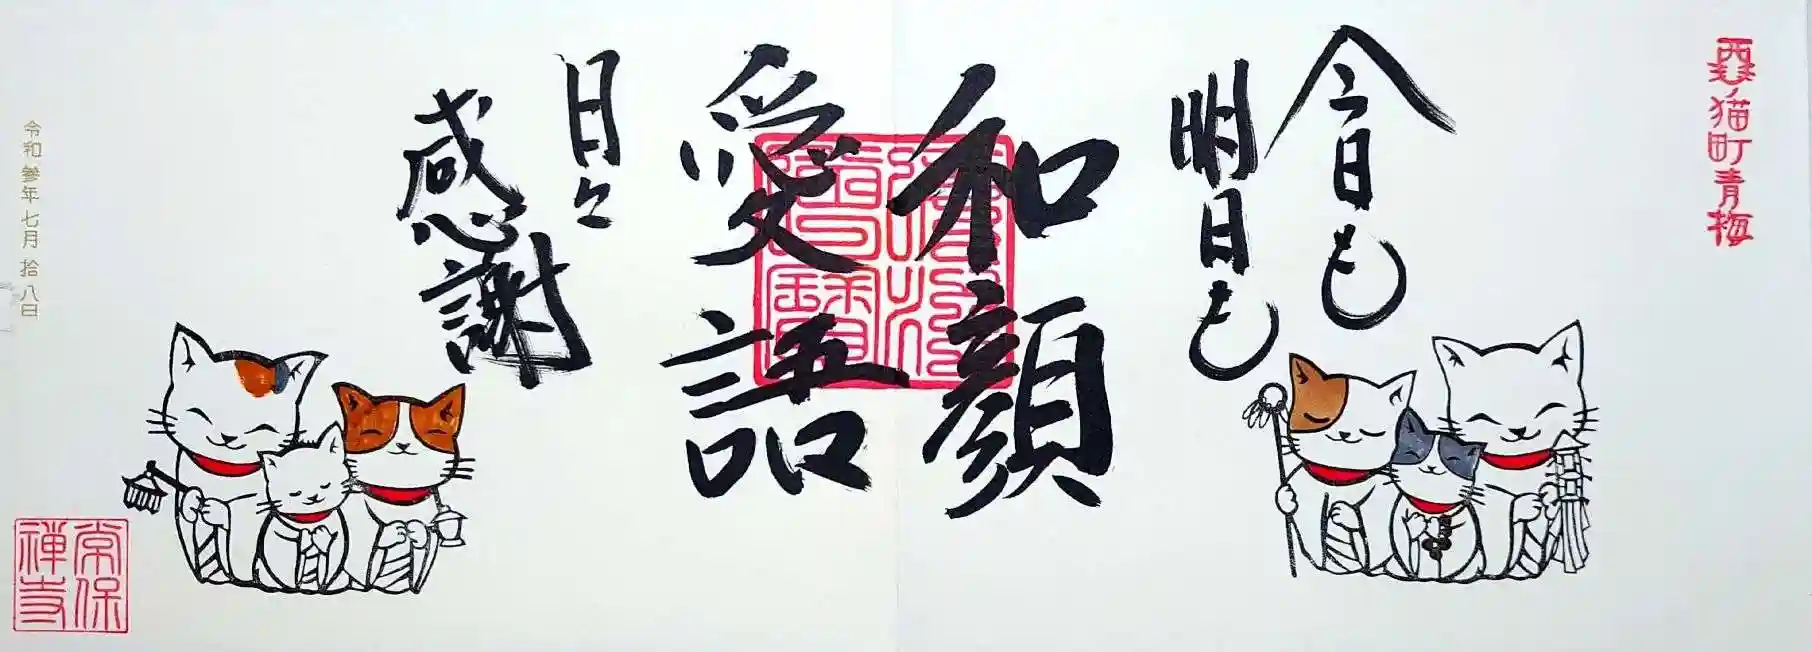 猫町青梅
今日も
明日も
和顔
愛語
日々
感謝
令和 參年 七月 拾八日
常保
禪寺